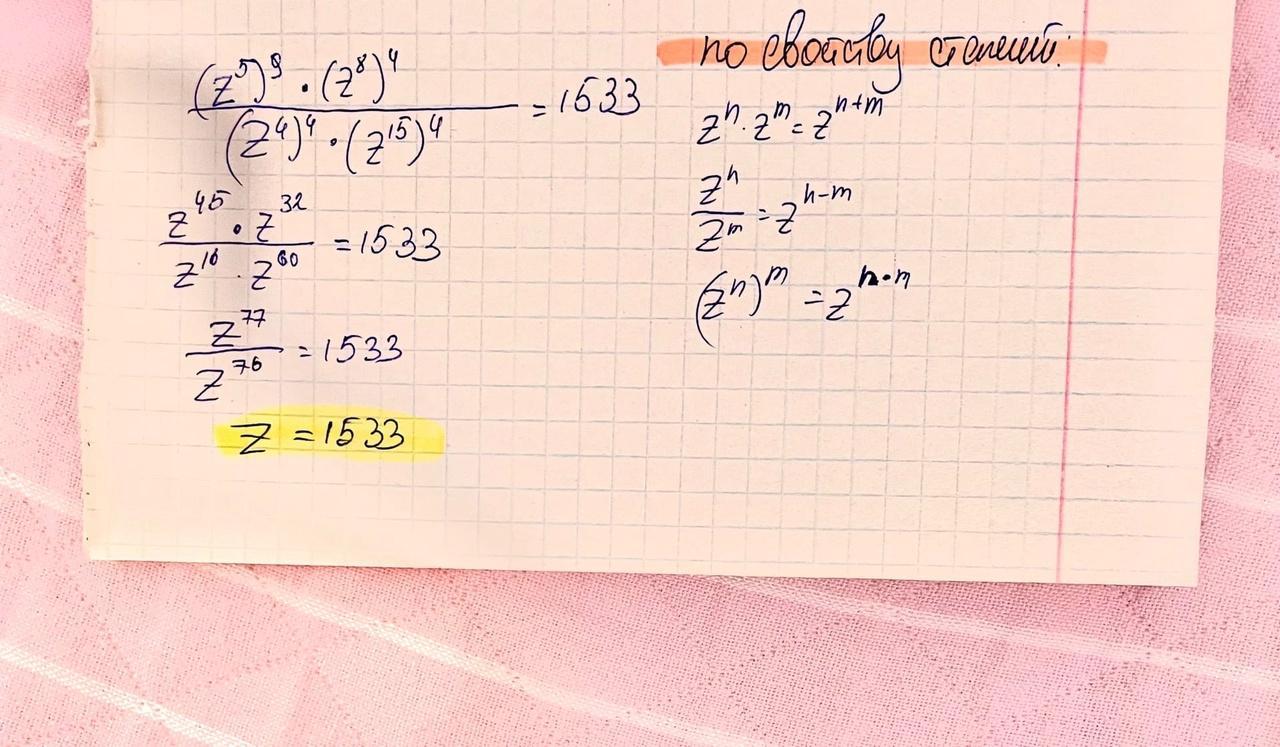 (z⁵)⁹ · (z⁸)⁴ / (z⁴)⁴ · (z¹⁵)⁴ = 1533
z⁴⁵ · z³² / z¹⁶ · z⁶⁰ = 1533
z⁷⁷ / z⁷⁶ = 1533
z = 1533
по свойству степеней:
zⁿ · zᵐ = zⁿ⁺ᵐ
zⁿ / zᵐ = zⁿ⁻ᵐ
(zⁿ)ᵐ = zⁿ·ᵐ